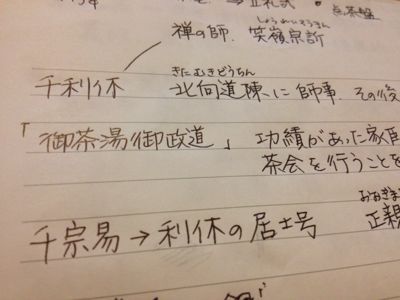 → 立礼式 ・点茶盤
しょうれいそうきん
禅の師. 笑嶺宗訢
きたむきどうちん
千利休 北向道陳に師事. その後
「御茶湯御政道」 功績があった家臣
茶会を行うことを
おおぎま
千宗易→利休の居士号 正親